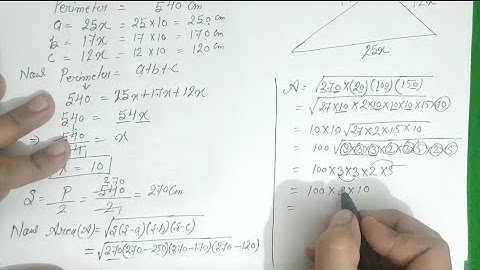 Perimeter = 540 cm
a = 25x = 25 × 10 = 250 cm
b = 17x = 17 × 10 = 170 cm
c = 12x = 12 × 10 = 120 cm
Now Perimeter = a+b+c
540 = 25x+17x+12x
540 = 54x
⇒ 540 = x
x = 10
S = P/2 = 540/2 = 270 cm
270
Now Area(Δ) = √s(s-a)(s-b)(s-c)
= √270(270-250)(270-170)(270-120)
12x
25x
A = √270×(20)(100)(150)
= √27×10×2×10×10×10×15×10
= 10×10√27×2×15×10
= 100√3×3×3×2×3×5×2×5
= 100×3×3×2×5
= 100×9×10
=